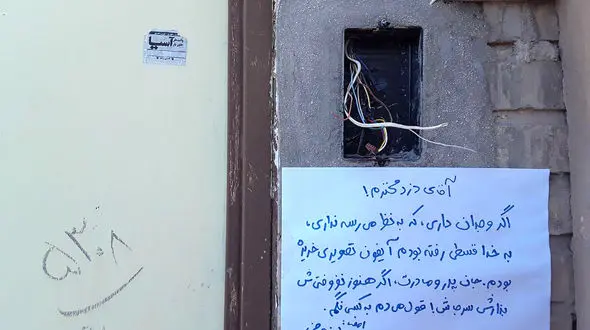 آسیا
۵۳۰۸
آقای دزد محترم!
اگر وجدان داری، که به نظر می رسه نداری،
به خدا قسطی رفته بودم آیفون تصویری خریده
بودم. جان پدر و مادرت، اگر هنوز نفروختیش
بذارش سر جاش! قول میدم به کسی نگم.